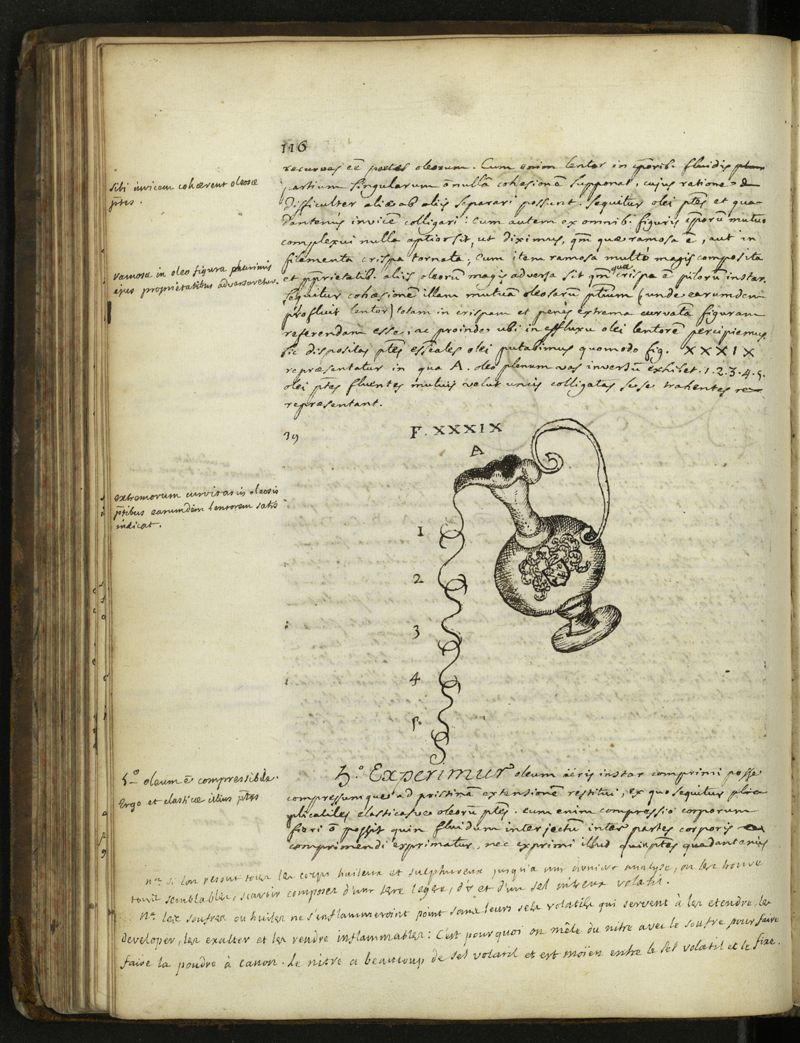 116
recurvas eē partes oleorum. Cum enim lentor in corib. fluidis
partium singularum nonnullā cohesionē supponat, cujus ratione
difficulter aliæ ab aliis separari possunt. sequitur olei ptēs et qua-
dantenus invicē colligari: Cum autem ex omnib. figuris mutuo
complexui nulla aptior sit, ut diximus, qm̄ quæ ramosa ē, aut in
filamenta crispa tornata; Cum item ramosa multò magis composita
et pprietatib. aliis oleorū magis adversa sit qm̄ quæ crispa ē pilorū instar.
sequitur cohæsionē illam mutuā oleosarū ptium (unde earumdem
profluit lentor) totam in crispam et penes extrema curvatā figuram
referendam esse; ac proinde ubi in effluxu olei lentorē percipiemus
sic dispositas ptēs olei putabimus quomodo fig. XXXIX
repræsentatur in qua A. oleo plenum vas inversū exhibet. 1. 2. 3. 4. 5.
olei ptes fluentes mutuis velut uncis colligatas sese trahentes re-
repræsentant.
sibi invicem cohærent oleosæ
ptes.
ramosa in oleo figura plurimis
ejus proprietatibus adversaretur.
39
F. XXXIX
A
1
2
3
4
5
extremorum curvitas in oleosis
ptibus earumdem lentorem satis
indicat.
5.º oleum ē compressibile.
Ergo et elasticæ illius ptēs
5.º Experimur oleum aëris instar comprimi posse
compressumque ad pristinā extensionē restitui, ex quo sequitur
plicatiles elasticasve oleorū ptēs. cum enim compressio corporum
fieri ō possit quin fluidum interjectū inter partes corporis
comprimendi exprimatur, nec exprimi illud quin ptes quadantenus
nᵃ. si l'on resout tous les corps huileux et sulphureux jusqu'a une derniere analyse, on les trouve
tous semblables, scavoir composez d'une terre legere, d' et d'un sel nitreux volatil.
nᵃ. les soufres ou huiles ne s'enflammeroint point sans leurs sels volatils qui servent à les etendre, les
developer, les exalter et les rendre inflammables: C'est pourquoi on mêle du nitre avec le soufre pour faire
faire la poudre à canon. le nitre a beaucoup de sel volatil et est moïen entre le sel volatil et le fixe.